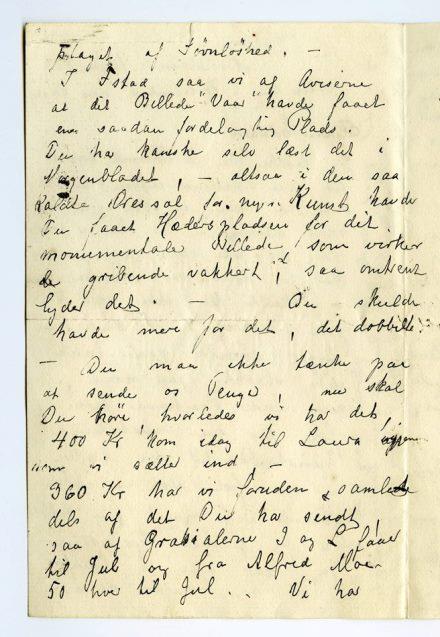 plaget af Søvnløshed. —
I Fstad saa vi af Aviserne
at dit Billede "Vaar" havde faaet
en saadan fordelagtig Plads.
Du har kanske selv læst det i
Morgenbladet, — altsaa i den saa
kaldte Æressal for nyere Kunst havde
Du faaet Hæderspladsen for dit
monumentale Billede, som virker
gribende vakkert", saa omtrent
lyder det. — Du skulde
havde mere for det, det dobbelte.
— Du maa ikke tænke paa
at sende os Penge, nu skal
Du høre hvorledes vi har det,
400 Kr kom idag til Laura
som vi sætter ind —
360 Kr har vi foruden,
dels af det Du har sendt,
saa af Gratialerne I og L faaer
til Jul og fra Alfred Moe
50 hver til Jul.. Vi har